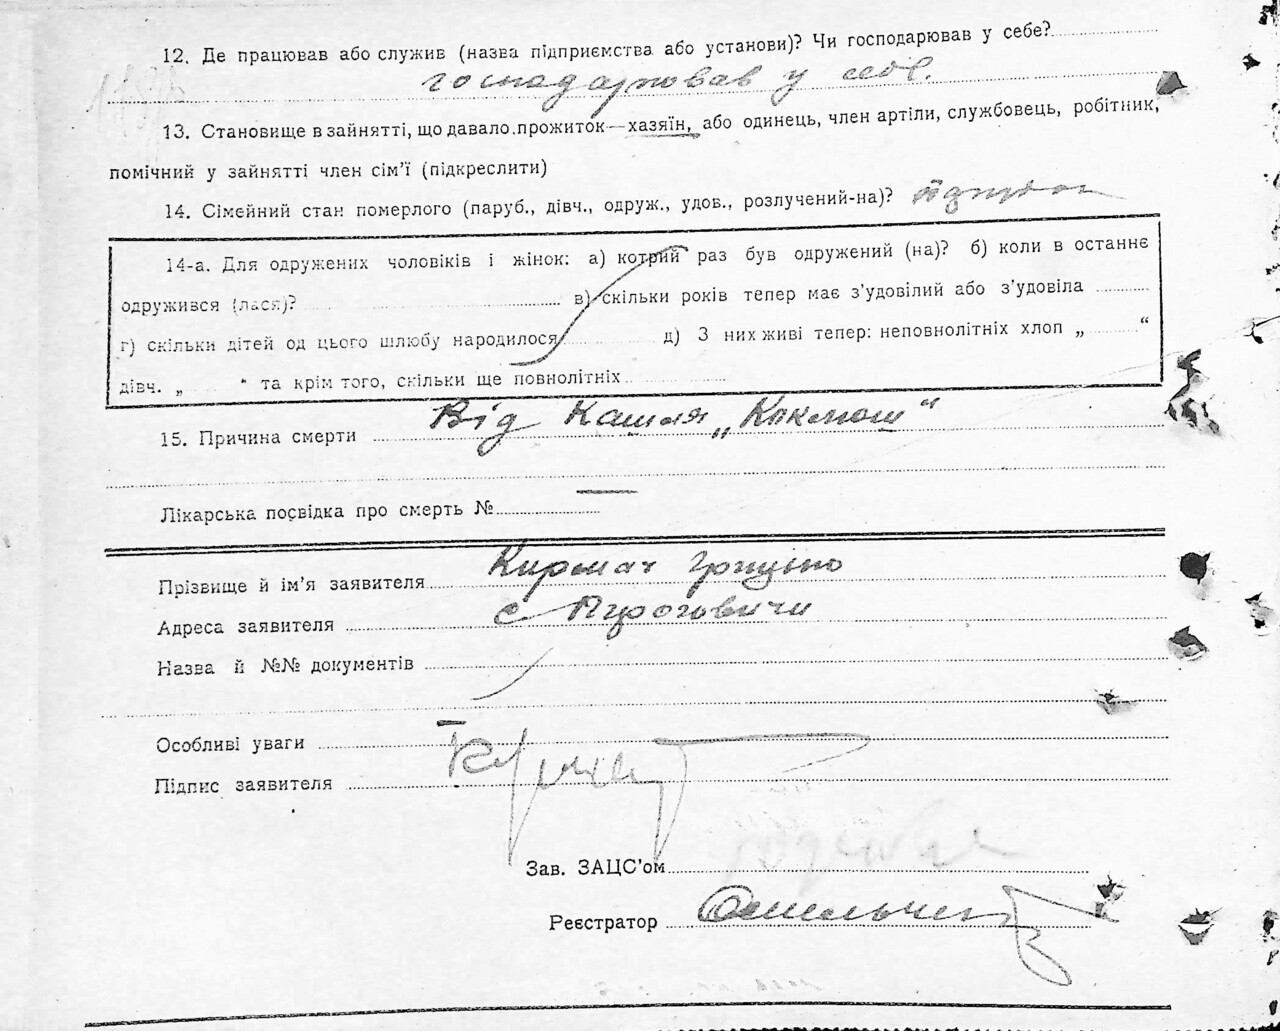 12. Де працював або служив (назва підприємства або установи)? Чи господарював у себе?
господарював у себе.
13. Становище в зайнятті, що давало прожиток—хазяїн, або одинець, член артіли, службовець, робітник,
помічний у зайнятті член сім’ї (підкреслити)
14. Сімейний стан померлого (паруб., дівч., одруж., удов., розлучений-на)?
14-а. Для одружених чоловіків і жінок: а) котрий раз був одружений (на)? б) коли в останнє
одружився (лася)? в) скільки років тепер має з’удовілий або з’удовіла
г) скільки дітей од цього шлюбу народилося д) З них живі тепер: неповнолітніх хлоп „ “
дівч. „ “ та крім того, скільки ще повнолітніх
15. Причина смерти Від Кашля „Коклюш“
Лікарська посвідка про смерть № —
Прізвище й ім’я заявителя
Адреса заявителя с Пироговичи
Назва й №№ документів
Особливі уваги —
Підпис заявителя
Зав. ЗАЦС’ом
Реєстратор